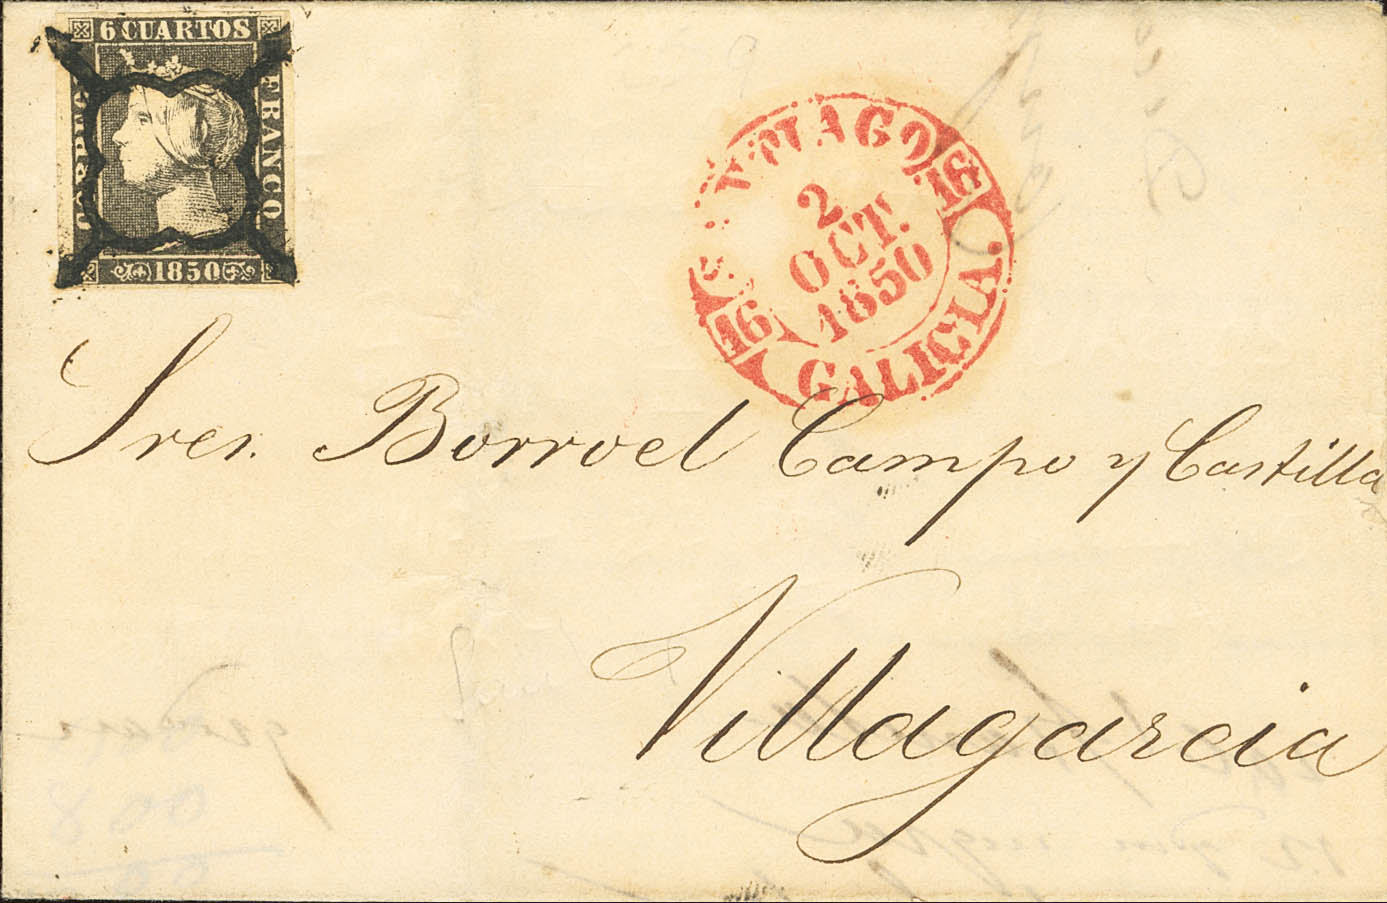 6 CUARTOS
CORREOS
FRANCO
1850
SANTIAGO
16
2
OCT.
1850
16
GALICIA.
Sres. Borroel Campo y Castilla
Villagarcia